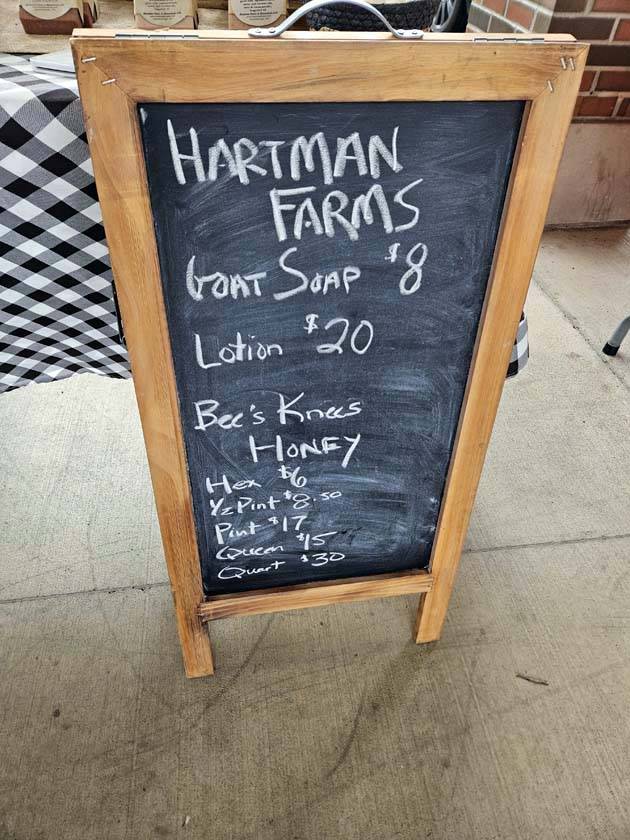 HARTMAN
FARMS
GOAT SOAP $8
Lotion $20
Bee's Knees
HONEY
Hex $6
½ Pint $8.50
Pint $17
Queen $15
Quart $30